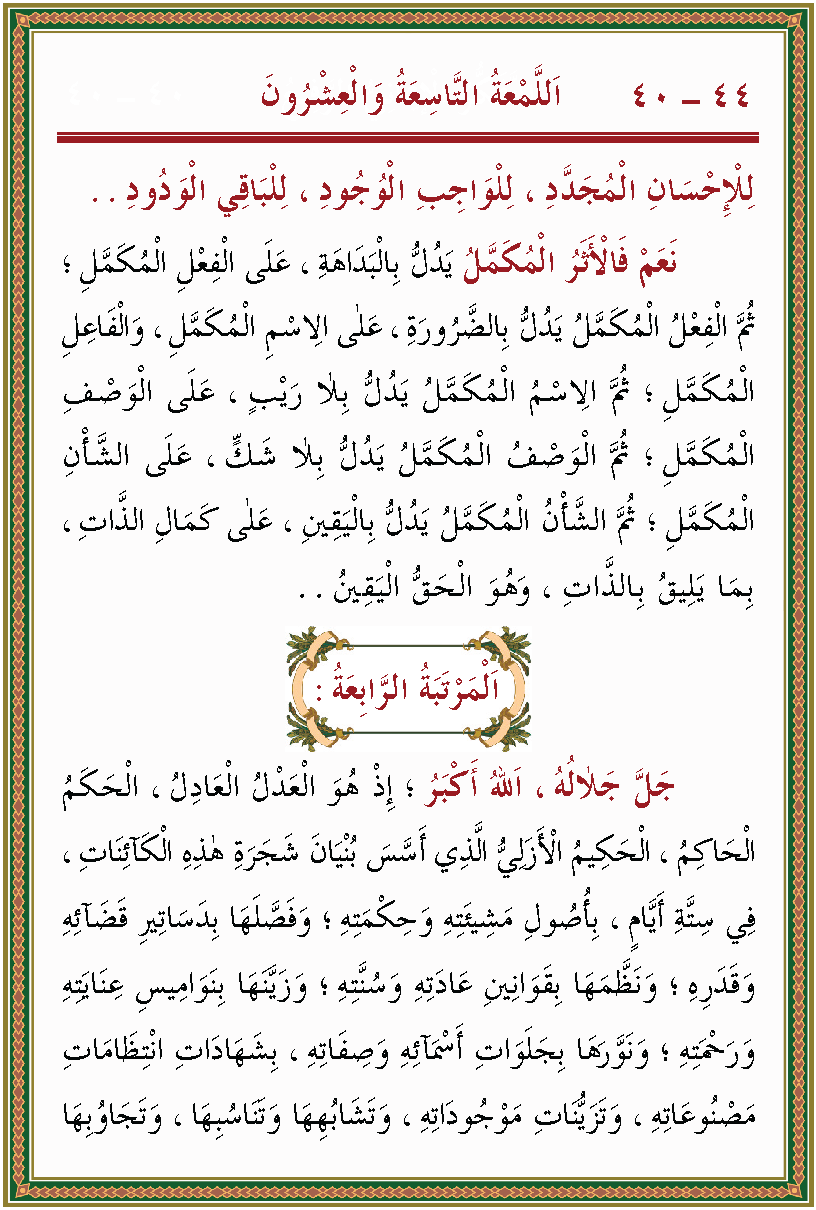 اَللَّمْعَةُ التَّاسِعَةُ وَالْعِشْرُونَ ٤٤ – ٤٠
لِلْإِحْسَانِ الْمُجَدَّدِ ، لِلْوَاجِبِ الْوُجُودِ ، لِلْبَاقِي الْوَدُودِ . .
نَعَمْ فَالْأَثَرُ الْمُكَمَّلُ يَدُلُّ بِالْبَدَاهَةِ ، عَلَى الْفِعْلِ الْمُكَمَّلِ ؛
ثُمَّ الْفِعْلُ الْمُكَمَّلُ يَدُلُّ بِالضَّرُورَةِ ، عَلٰى الِاسْمِ الْمُكَمَّلِ ، وَالْفَاعِلِ
الْمُكَمَّلِ ؛ ثُمَّ الِاسْمُ الْمُكَمَّلُ يَدُلُّ بِلاٰ رَيْبٍ ، عَلَى الْوَصْفِ
الْمُكَمَّلِ ؛ ثُمَّ الْوَصْفُ الْمُكَمَّلُ يَدُلُّ بِلاٰ شَكٍّ ، عَلَى الشَّأْنِ
الْمُكَمَّلِ ؛ ثُمَّ الشَّأْنُ الْمُكَمَّلُ يَدُلُّ بِالْيَقِينِ ، عَلٰى كَمَالِ الذَّاتِ ،
بِمَا يَلِيقُ بِالذَّاتِ ، وَهُوَ الْحَقُّ الْيَقِينُ . .
اَلْمَرْتَبَةُ الرَّابِعَةُ :
جَلَّ جَلاٰلُهُ ، اَللهُ أَكْبَرُ ؛ إِذْ هُوَ الْعَدْلُ الْعَادِلُ ، الْحَكَمُ
الْحَاكِمُ ، الْحَكِيمُ الْأَزَلِيُّ الَّذِي أَسَّسَ بُنْيَانَ شَجَرَةِ هٰذِهِ الْكَآئِنَاتِ ،
فِي سِتَّةِ أَيَّامٍ ، بِأُصُولِ مَشِيئَتِهِ وَحِكْمَتِهِ ؛ وَفَصَّلَهَا بِدَسَاتِيرِ قَضَآئِهِ
وَقَدَرِهِ ؛ وَنَظَّمَهَا بِقَوَانِينِ عَادَتِهِ وَسُنَّتِهِ ؛ وَزَيَّنَهَا بِنَوَامِيسِ عِنَايَتِهِ
وَرَحْمَتِهِ ؛ وَنَوَّرَهَا بِجَلَوَاتِ أَسْمَآئِهِ وَصِفَاتِهِ ، بِشَهَادَاتِ انْتِظَامَاتِ
مَصْنُوعَاتِهِ ، وَتَزَيُّنَاتِ مَوْجُودَاتِهِ ، وَتَشَابُهِهَا وَتَنَاسُبِهَا ، وَتَجَاوُبِهَا